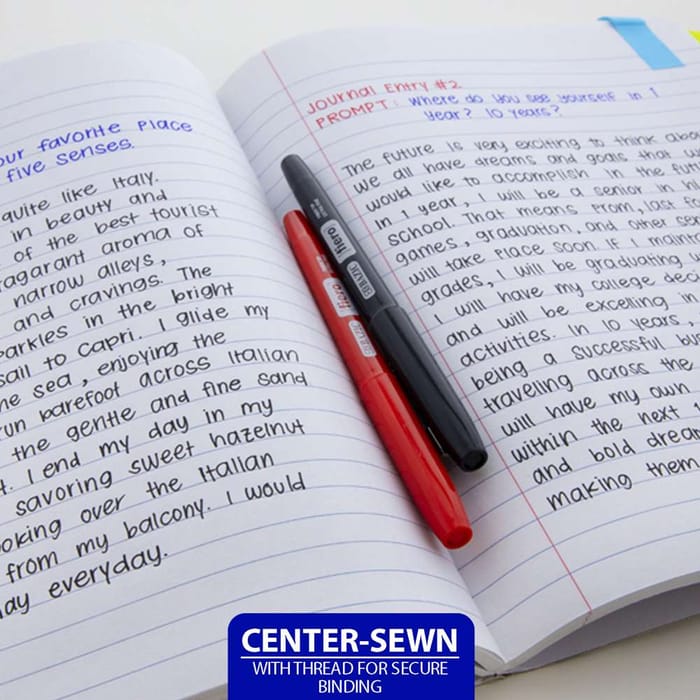 our favorite Place
five senses.
quite like Italy.
in beauty and
of the best tourist
ragarant aroma of
narrow alleys,
and cravings. The
arkles in the bright
sail to Capri. I glide my
he sea, enjoying the
run barefoot across Italian
the gentle and fine sand
t. I end my day in my
savoring sweet hazelnut
ooking over the Italian
from my balcony. I would
day everyday.
Journal Entry #2
PROMPT: Where do you see yourself in 1
year? 10 years?
The future is very exciting to think abou
we all have dreams and goals that
would like to accomplish in the futu
In 1 year, I will be a senior in hi
school. That means Prom, last f
games, graduation, and other se
will take place soon. If I maint
grades, I will be graduating
I will have my college dec
and will be excelling in
activities. In 10 years,
being a successful bu
traveling across the
will have my own
within the next
and bold dream
making them
fiero
BAZIC
fiero
BAZIC
CENTER-SEWN
WITH THREAD FOR SECURE
BINDING